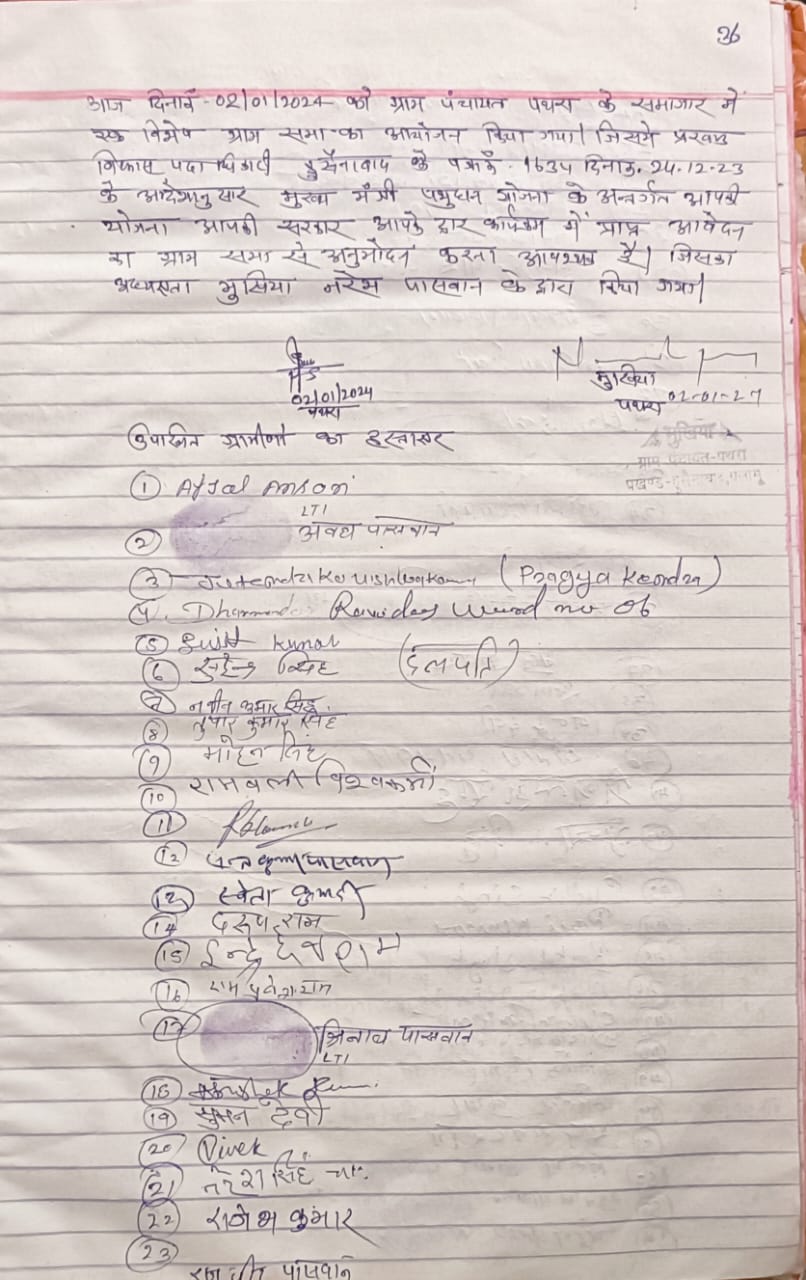 26
आज दिनांक -02/01/2024 को ग्राम पंचायत पथरा के सभागार में
एक विशेष ग्राम सभा का आयोजन किया गया। जिसमे प्रखण्ड
विकास पदाधिकारी हुसैनाबाद के पत्रांक. 1634 दिनांक. 24.12.23
के आदेशानुसार मुख्य मंत्री पशुधन योजना के अन्तर्गत आपकी
योजना आपकी सरकार आपके द्वार कार्यक्रम में प्राप्त आवेदन
का ग्राम सभा से अनुमोदन करना आवश्यक है। जिसका
अध्यक्षता मुखिया नरेश पासवान के द्वारा किया गया।
PS
02/01/2024
पथरा
मुखिया
पथरा 02-01-24
उपस्थित ग्रामीणों का हस्ताक्षर
मुखिया
ग्राम पंचायत-पथरा
① Afjal Ansari
LTI
② अवध पासवान
③ Jitendra Kr vishwakarma (Pragya Kendra)
4. Ravidas ward no 06
⑤ kumar
⑥ सिंह (दलपति)
⑦ नवीन कुमार सिंह
⑧ तुषार कुमार सिंह
⑨ मोहन सिंह
⑩ रामबली विश्वकर्मा
⑪
⑫ पासवान
⑬ स्वेता कुमारी
⑭ राम
⑮ इन्द्रदेव राम
⑯ राम प्रवेश राम
⑰ श्रिनाथ पासवान
LTI
⑱
⑲ सुमन देवी
⑳ Vivek
21 नरेश सिंह
22 राजेश कुमार
23
पासवान